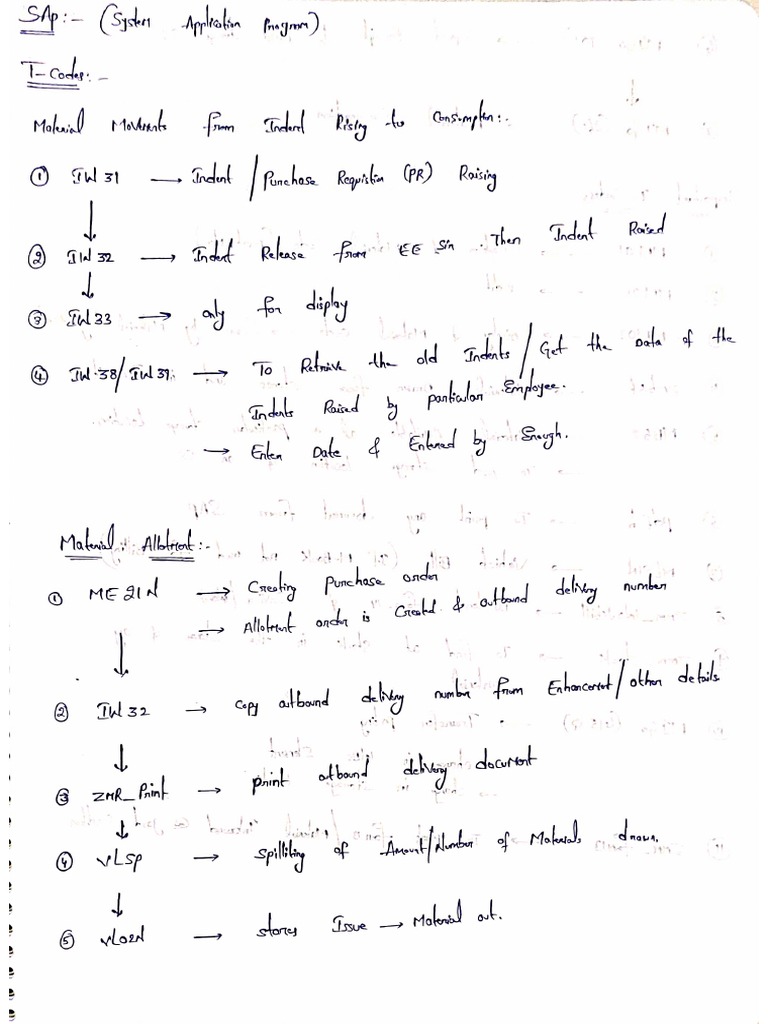 SAp:- (System Application Program)
T-Codes:-
Material Movements from Indent Rising to Consumption:-
① IW 31 → Indent / Purchase Requistion (PR) Raising
↓
② IW 32 → Indent Release from EE Sir. Then Indent Raised
↓
③ IW33 → only for display
④ IW-38/IW39 → To Retreive the old Indents / Get the Data of the
Indents Raised by particular Employee.
→ Enter Date & Entered by Enough.
Material Allotment:-
① ME21N → Creating Purchase order
→ Allotment order is Created & outbound delivery number
↓
② IW32 → Copy outbound delivery number from Enhancement/other details
↓
③ ZMR_Print → print outbound delivery document
↓
④ VLSP → Spilliting of Amount/Number of Materials drawn.
↓
⑤ VL02N → Stores Issue → Material out.